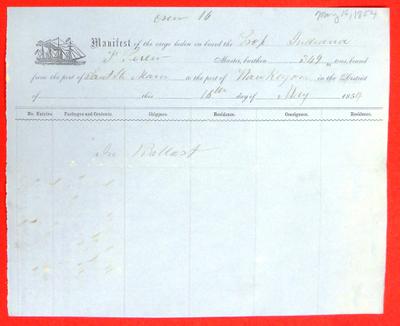 crew 16
May 16, 1854
Manifest of the cargo laden on board the Prop Indiana
Master, burthen 349 tons, bound
from the port of Sault Ste Marie to the port of Waukegan in the District
of this 16th day of May 1854
No. Entries. Packages and Contents. Shippers. Residence. Consignees. Residence.
In Ballast